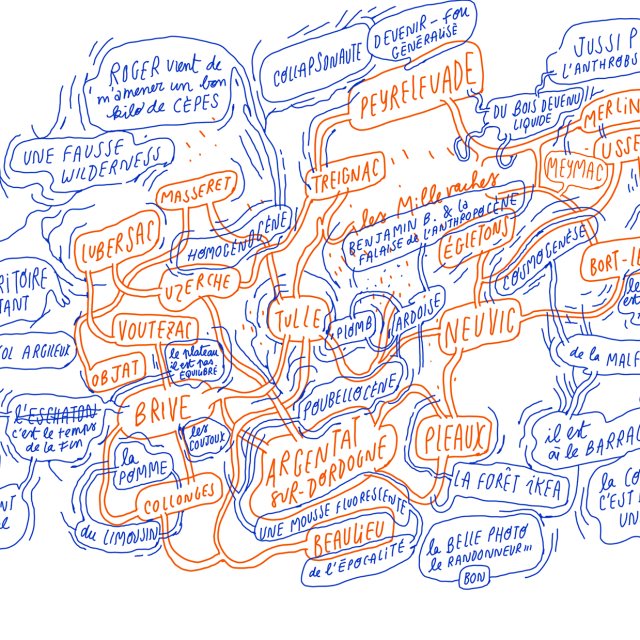 ROGER vient de
m'amener un bon
kilo de CÈPES
COLLAPSONAUTE
DEVENIR-FOU
GÉNÉRALISÉ
JUSSI P
L'ANTHROBS
PEYRELEVADE
DU BOIS DEVENU
LIQUIDE
MERLIN
USSE
UNE FAUSSE
WILDERNESS
MASSERET
TREIGNAC
MEYMAC
les Millevaches
LUBERSAC
HOMOGÉNOCÈNE
BENJAMIN B. & la
FALAISE de L'ANTHROPOCÈNE
ÉGLETONS
COSMOGENÈSE
BORT-LE
RITOIRE
TANT
UZERCHE
le
est
TULLE
PLOMB
ARDOISE
NEUVIC
VOUTEZAC
OL ARGILEUX
OBJAT
le plateau
il est pas
ÉQUILIBRÉ
de la MALF
BRIVE
POUBELLOCÈNE
L'ESCHATON
c'est le temps
de la Fin
les
COUJOUX
la
POMME
ARGENTAT
SUR-DORDOGNE
PLEAUX
il est
où le BARRA
COLLONGES
LA FORÊT IKEA
la CO
C'EST
UN
UNE MOUSSE FLUORESCENTE
du LIMOUSIN
BEAULIEU
de L'ÉPOCALITÉ
la BELLE PHOTO
le RANDONNEUR...
BON